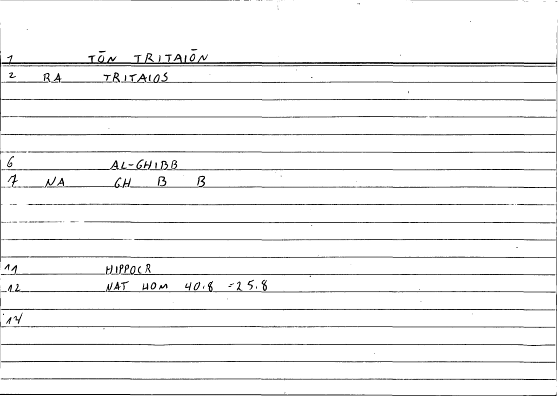 1 TŌN TRITAIŌN
2 RA TRITAIOS
6 AL-GHIBB
7 NA GH B B
11 HIPPOCR
12 NAT HOM 40.8 =25.8
14